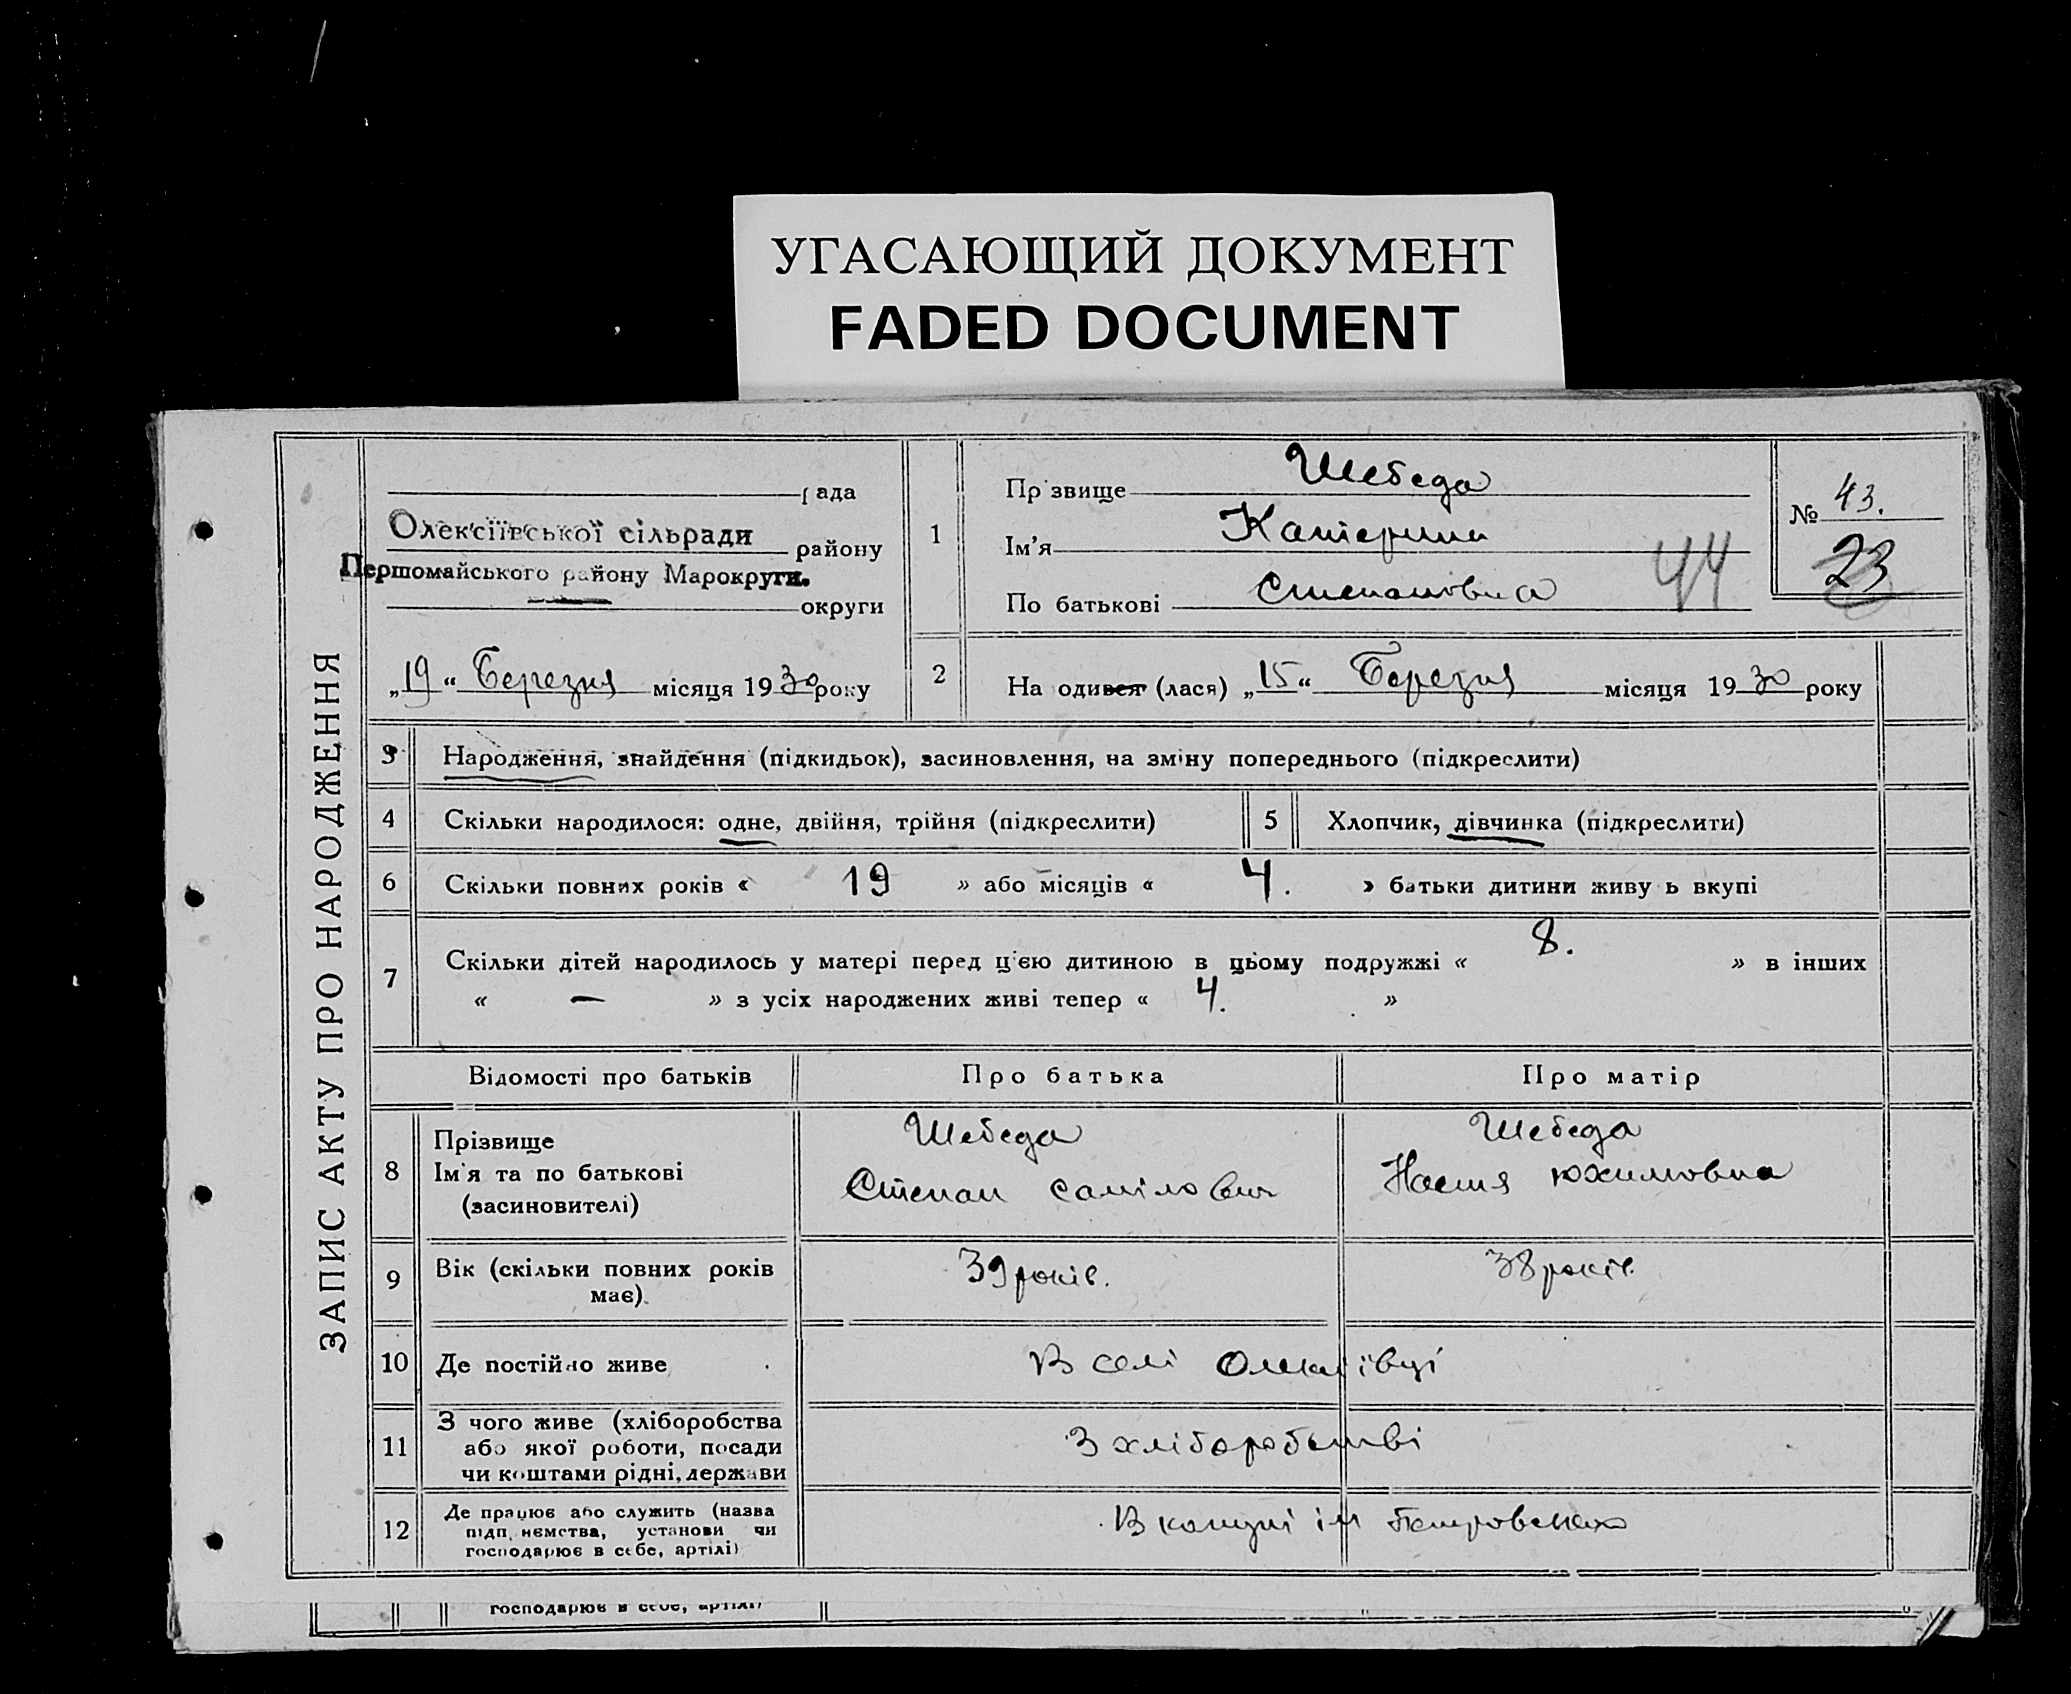 УГАСАЮЩИЙ ДОКУМЕНТ
FADED DOCUMENT
ЗАПИС АКТУ ПРО НАРОДЖЕННЯ
рада
Олексіївської сільради
району
Першомайського району Марокруги.
округи
„19“ Березня місяця 1930 року
1
Прізвище Шебеда
Ім'я Катерина
По батькові Степановна
44
№ 43.
23
2
На одився (лася) „15“ Березня місяця 1930 року
3 Народження, знайдення (підкидьок), засиновлення, на зміну попереднього (підкреслити)
4 Скільки народилося: одне, двійня, трійня (підкреслити)
5 Хлопчик, дівчинка (підкреслити)
6 Скільки повних років « 19 » або місяців « 4. » батьки дитини живу ь вкупі
7 Скільки дітей народилось у матері перед ц'єю дитиною в цьому подружжі « 8. » в інших
« — » з усіх народжених живі тепер « 4. »
Відомості про батьків Про батька Про матір
8
Прізвище
Ім'я та по батькові
(засиновителі)
Шебеда
Степан
Шебеда
Настя Юхимовна
9
Вік (скільки повних років
має).
39 років.
38 років.
10 Де постійно живе
В селі
11
З чого живе (хліборобства
або якої роботи, посади
чи коштами рідні, держави
З хліборобстві
12
Де працює або служить (назва
підп, нємства, установи чи
господарює в себе, артілі)
В комуні ім Петровского
господарює в себе, артілі)